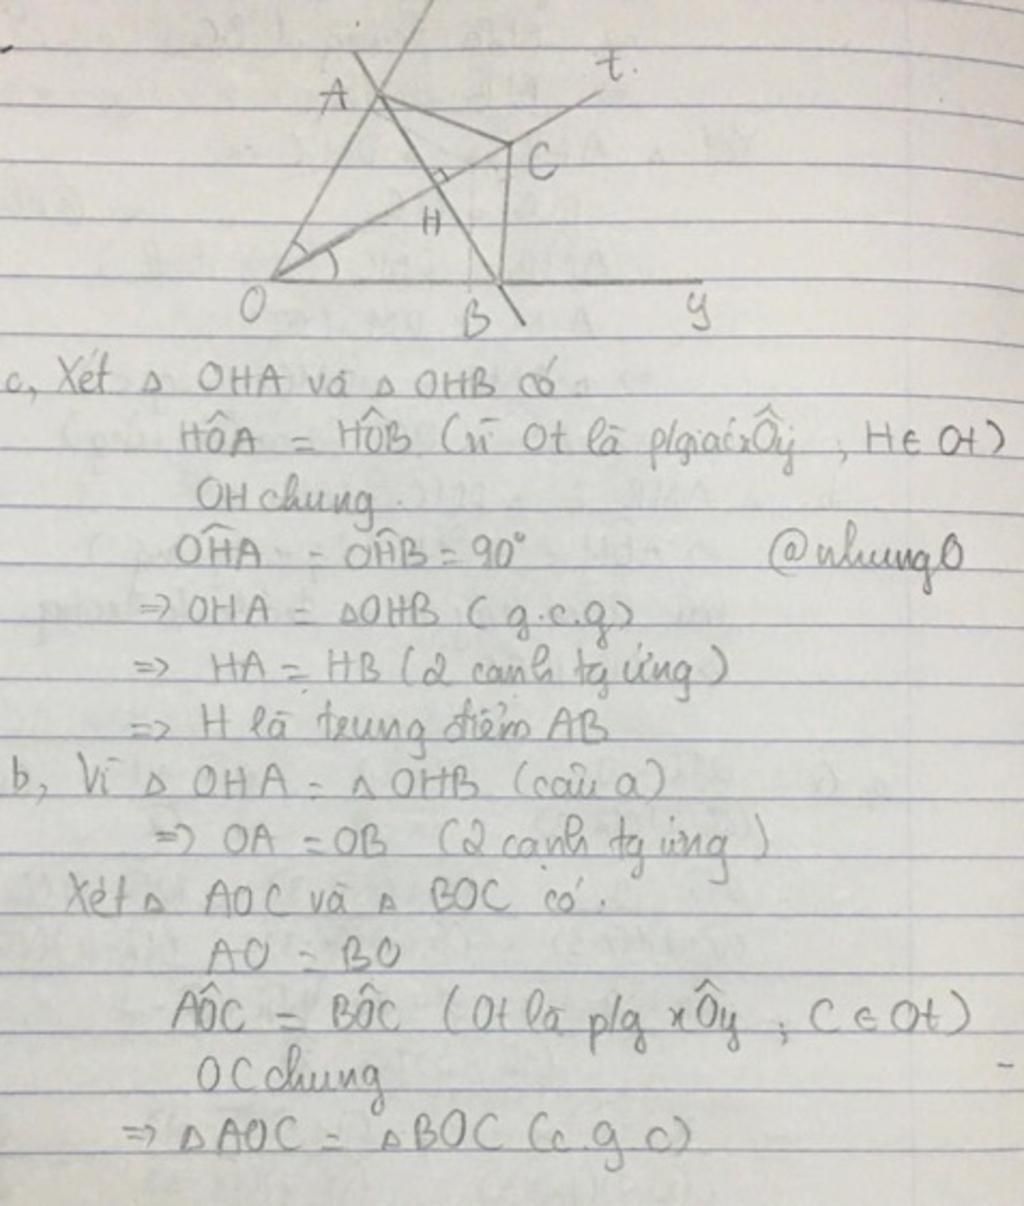 A
t.
C
H
O
B
y
c, Xét △ OHA và △ OHB có
HÔA = HÔB (vì Ot là p/giác xÔy , H∈Ot)
OH chung.
OĤA = OĤB = 90° @nhungO
=> OHA = △OHB (g.c.g)
=> HA = HB (2 cạnh tg ứng)
=> H là trung điểm AB
b, Vì △ OHA = △ OHB (câu a)
=> OA = OB (2 cạnh tg ứng)
Xét △ AOC và △ BOC có.
AO = BO
AÔC = BÔC (Ot là p/g xÔy , C ∈ Ot)
OC chung
=> △AOC = △BOC (c.g c)